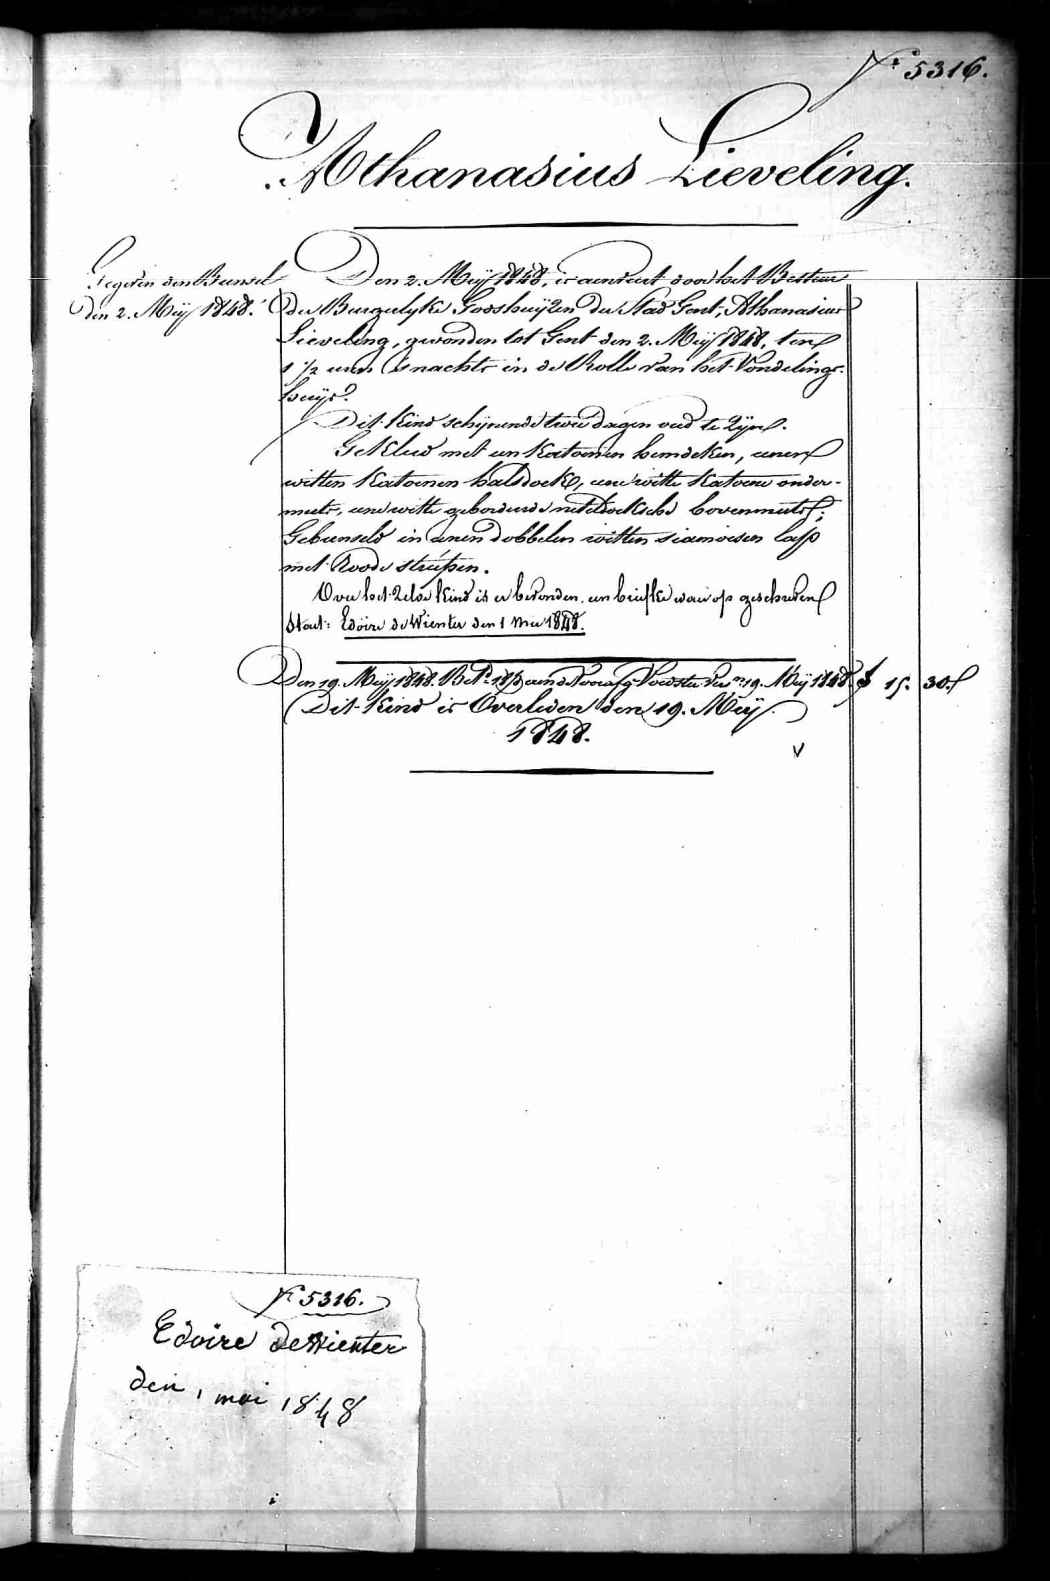 N° 5316.
Athanasius Lieveling.
Gegeven den Bunsel
den 2. Meij 1848.
Den 2. Meij 1848, is aenveirt door het Bestuur
der Burgelyke Godshuijzen der Stad Gent, Athanasius
Lieveling, gevonden tot Gent den 2. Meij 1848, ten
1 1/2 uren 's nachts in de Rolle van het Vondelings-
huijs.
Dit Kind schijnende twee dagen oud te zijn.
Gekleed met een Katoenen hemdeken, eenen
witten Katoenen halsdoek, eene witte Katoene onder-
muts, eene witte geborduurde neteldoeksche bovenmuts;
Gebunseld in eenen dobbelen witten siamoisen lap
met Roode streepen.
Over het zelve Kind is er bevonden een briefke waer op geschreven
staat: Edoire de Wienter den 1 Mei 1848.
Den 19. Meij 1848. Bet. aende Voorsg. Voedster 19. Meij 1848. f 15. 30.
Dit Kind is Overleden den 19. Meij
1848.
N° 5316.
Edoire deWienter
den 1 mai 1848